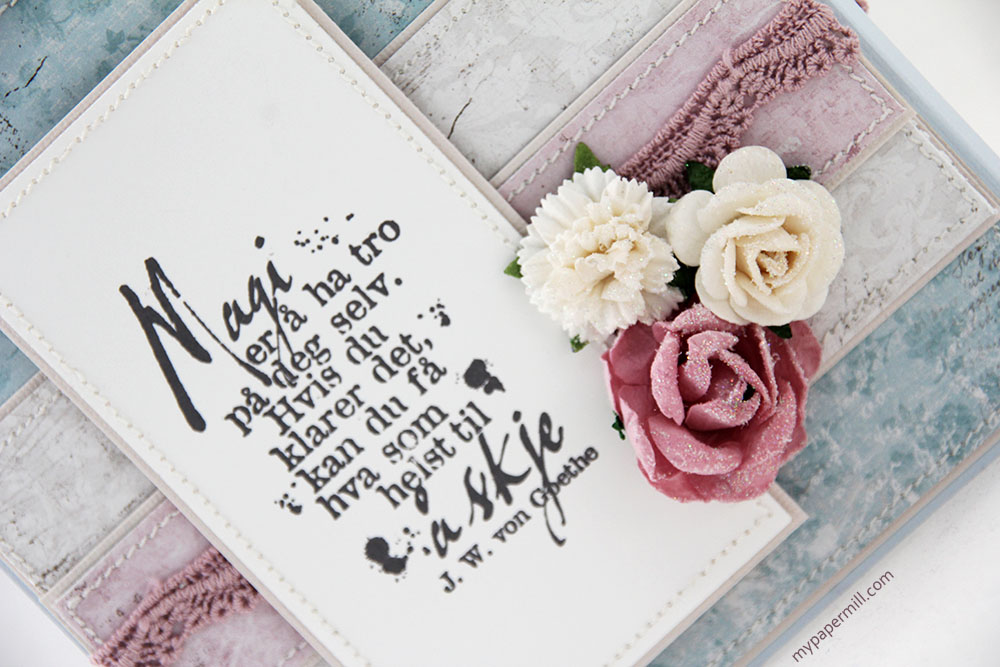 Magi
er å ha tro
på deg selv.
Hvis du
klarer det,
kan du få
hva som
helst til
å skje
J. W. von Goethe
mypapermill.com